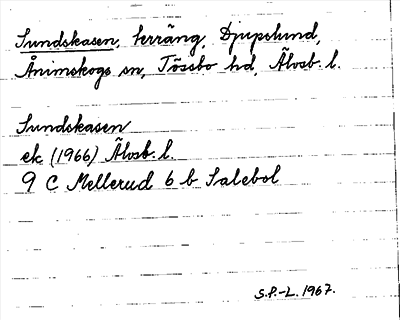 Sundskasen, terräng, Djupslund,
Ånimskogs sn, Tössbo hd, Älvsb. l.
Sundskasen
ek. (1966) Älvsb. l.
9 C Mellerud 6 b Salebol
S.P.-L. 1967.